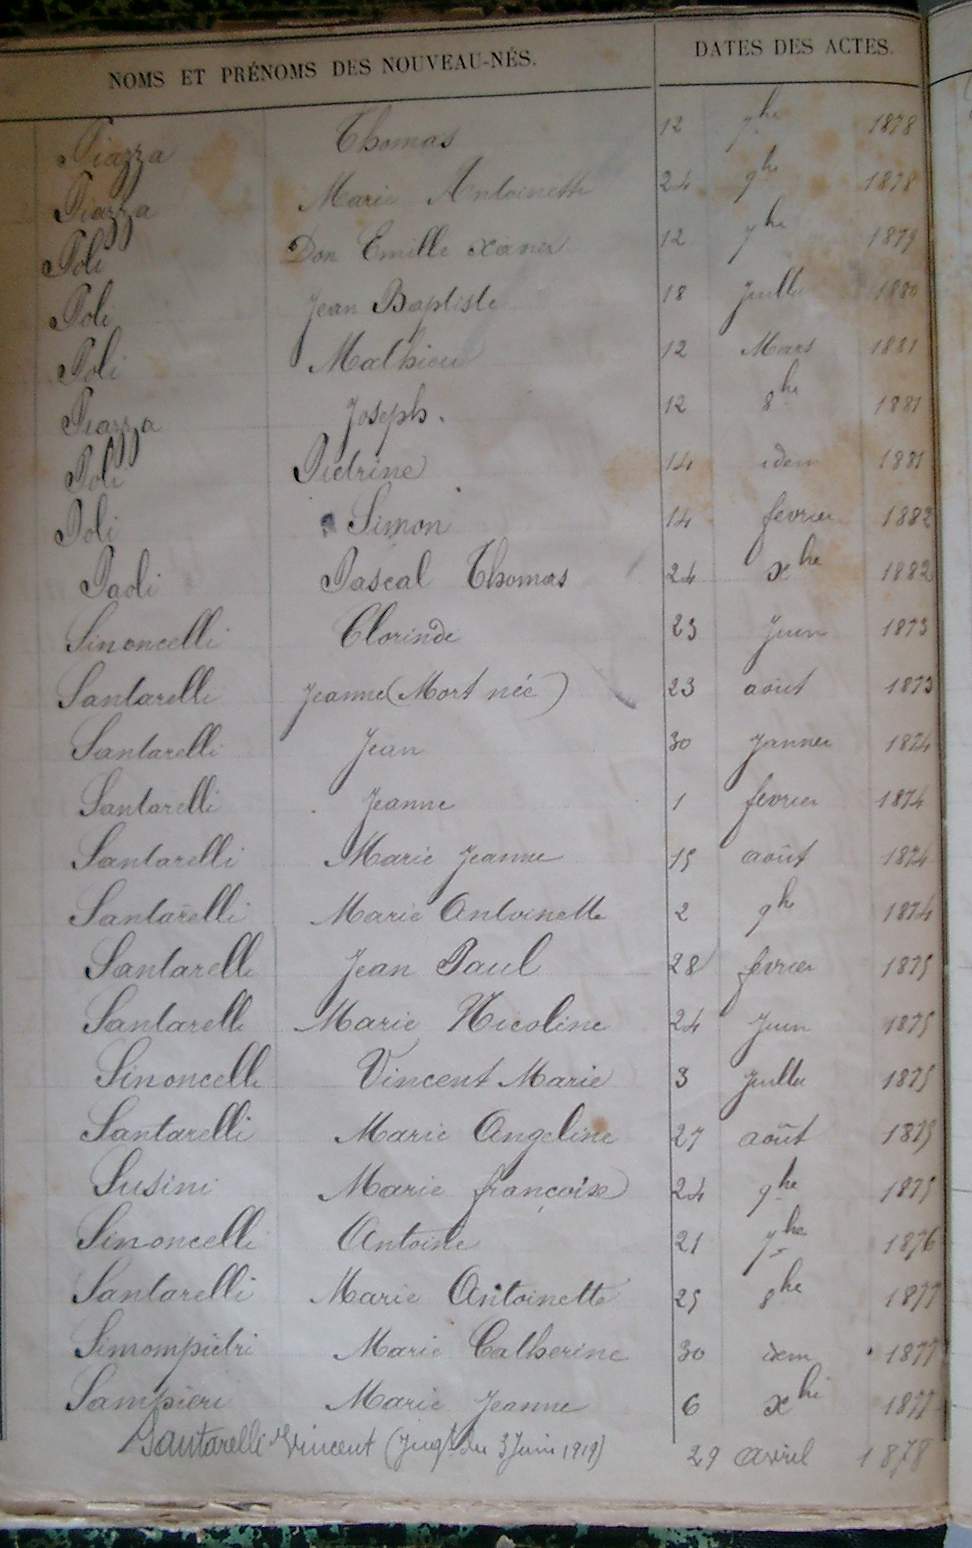 NOMS ET PRÉNOMS DES NOUVEAU-NÉS. DATES DES ACTES.
Piazza Thomas 12 7bre 1878
Piazza Marie Antoinette 24 9bre 1878
Poli Don Emille Xavier 12 7bre 1879
Poli Jean Baptiste 18 Juillet 1880
Poli Mathieu 12 Mars 1881
Piazza Joseph. 12 8bre 1881
Poli Pietrine 14 idem 1881
Poli Simon 14 fevrier 1882
Paoli Pascal Thomas 24 xbre 1882
Sinoncelli Clorinde 23 Juin 1873
Santarelli Jeanne (Mort née) 23 août 1873
Santarelli Jean 30 Janvier 1874
Santarelli Jeanne 1 fevrier 1874
Santarelli Marie Jeanne 15 août 1874
Santarelli Marie Antoinette 2 9bre 1874
Santarelli Jean Paul 28 fevrier 1875
Santarelli Marie Nicoline 24 Juin 1875
Sinoncelli Vincent Marie 3 Juillet 1875
Santarelli Marie Angeline 27 août 1875
Susini Marie françoise 24 9bre 1875
Sinoncelli Antoine 21 7bre 1876
Santarelli Marie Antoinette 25 8bre 1877
Simompietri Marie Catherine 30 idem 1877
Sampieri Marie Jeanne 6 xbre 1877
Santarelli Vincent (Jugt du 3 Juin 1919) 29 avril 1878